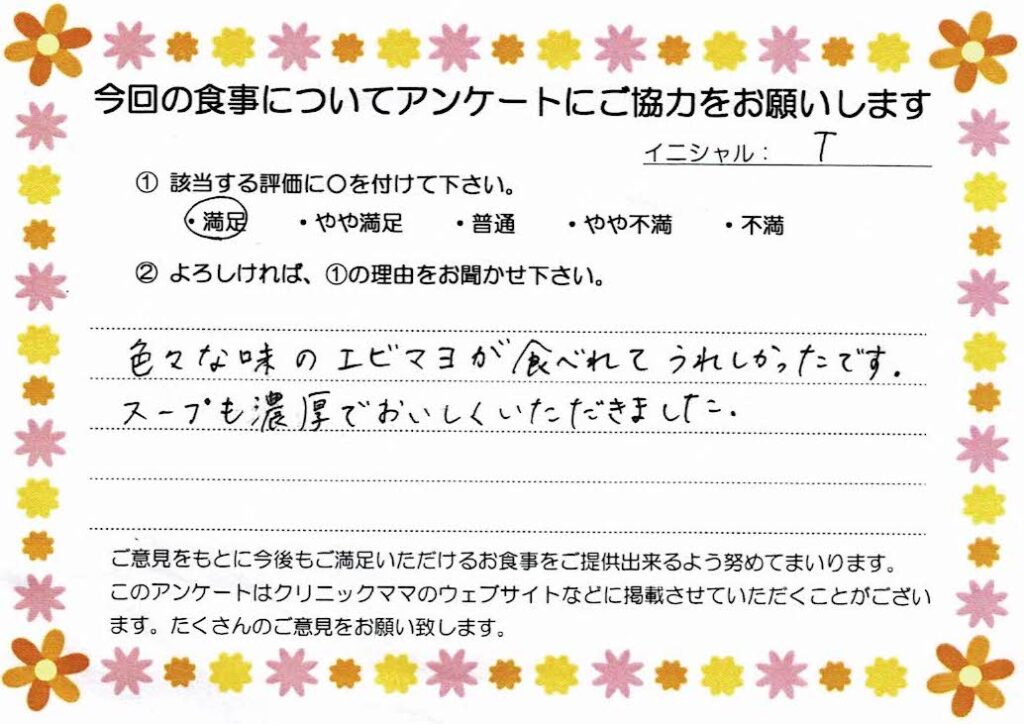 今回の食事についてアンケートにご協力をお願いします
イニシャル： T
① 該当する評価に〇を付けて下さい。
・満足 ・やや満足 ・普通 ・やや不満 ・不満
② よろしければ、①の理由をお聞かせ下さい。
色々な味のエビマヨが食べれてうれしかったです.
スープも濃厚でおいしくいただきました.
ご意見をもとに今後もご満足いただけるお食事をご提供出来るよう努めてまいります。
このアンケートはクリニックママのウェブサイトなどに掲載させていただくことがござい
ます。たくさんのご意見をお願い致します。